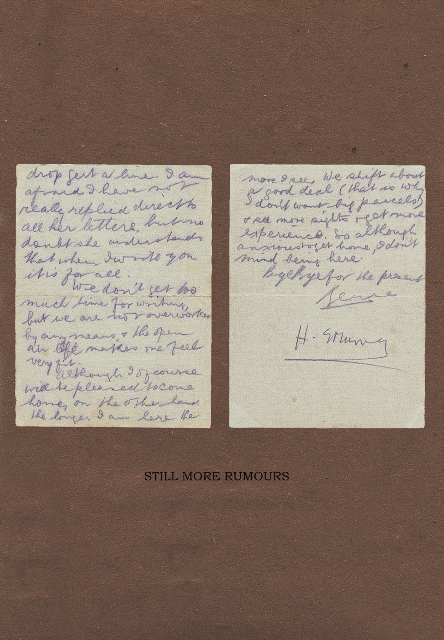 drop gert a line. I am
afraid I have not
really replied direct to
all her letters, but no
doubt she understands
that when I write to you
it is for all.
We don't get too
much time for writing,
but we are not overworked
by any means & the open
air life makes one feel
very fit.
Although I of course
will be pleased to come
home, on the other hand
the longer I am here the
more I see. We shift about
a good deal (that is why
I don't want big parcels)
& see more sights & get more
experience. So although
anxious to get home, I don't
mind being here
Bye Bye for the present
H.
STILL MORE RUMOURS